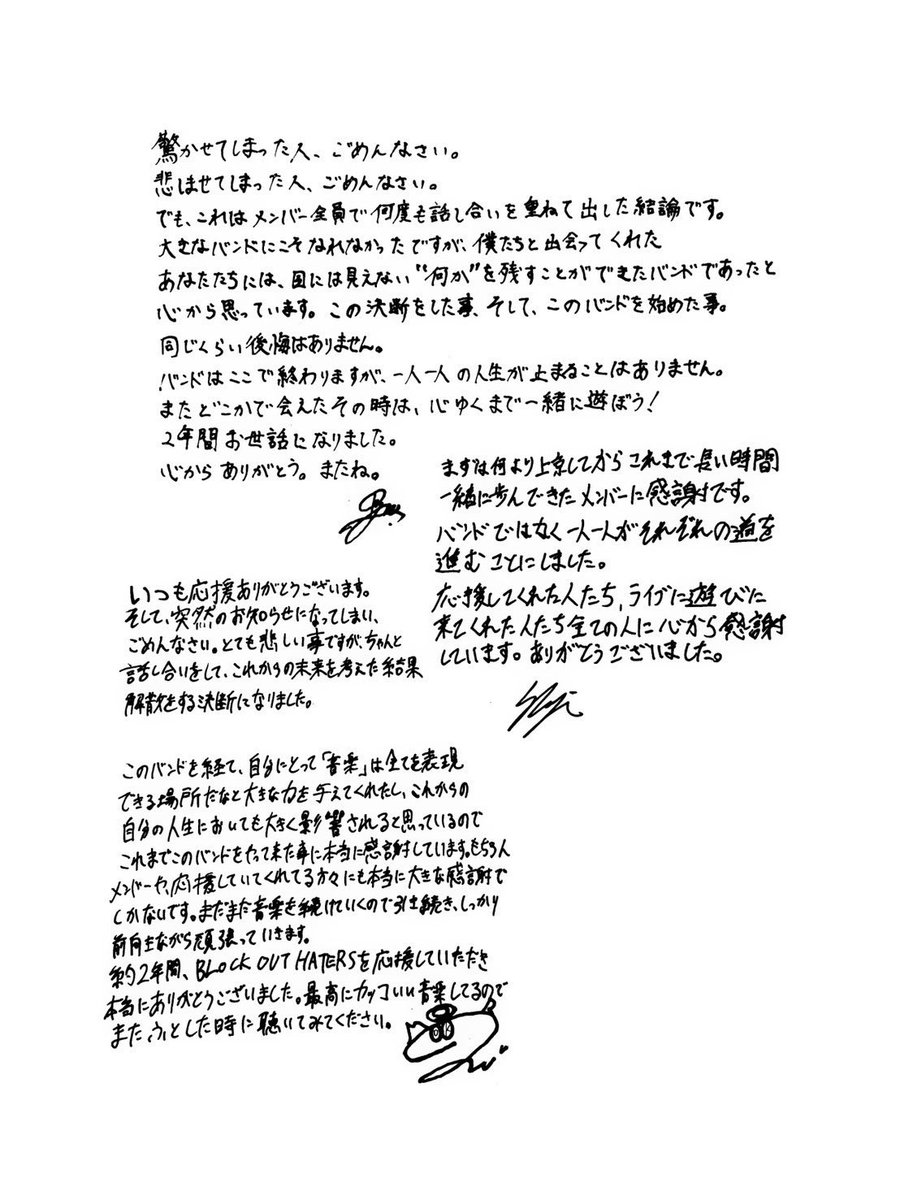 驚かせてしまった人、ごめんなさい。
悲しませてしまった人、ごめんなさい。
でも、これはメンバー全員で何度も話し合いを重ねて出した結論です。
大きなバンドにこそなれなかったですが、僕たちと出会ってくれた
あなたたちには、目には見えない“何か”を残すことができたバンドであったと
心から思っています。この決断をした事、そして、このバンドを始めた事。
同じくらい後悔はありません。
バンドはここで終わりますが、一人一人の人生が止まることはありません。
またどこかで会えたその時は、心ゆくまで一緒に遊ぼう!
2年間お世話になりました。
心からありがとう。またね。
まずは何より上京してからこれまで長い時間
一緒に歩んできたメンバーに感謝です。
バンドではなく一人一人がそれぞれの道を
進むことにしました。
応援してくれた人たち、ライブに遊びに
来てくれた人たち全ての人に心から感謝
しています。ありがとうございました。
いつも応援ありがとうございます。
そして、突然のお知らせになってしまい、
ごめんなさい。とても悲しい事ですが、ちゃんと
話し合いをして、これからの未来を考えた結果
解散をする決断になりました。
このバンドを経て、自分にとって「音楽」は全てを表現
できる場所だなと大きな力を与えてくれたし、これからの
自分の人生においても大きく影響されると思っているので
これまでこのバンドをやって来た事に本当に感謝しています。もちろん
メンバーや、応援していてくれてる方々にも本当に大きな感謝で
しかないです。まだまだ音楽を続けていくので引き続き、しっかり
前向きながら頑張っていきます。
約2年間、BLOCK OUT HATERSを応援していただき
本当にありがとうございました。最高にカッコいい音楽してるので
また、ふとした時に聴いてみてください。